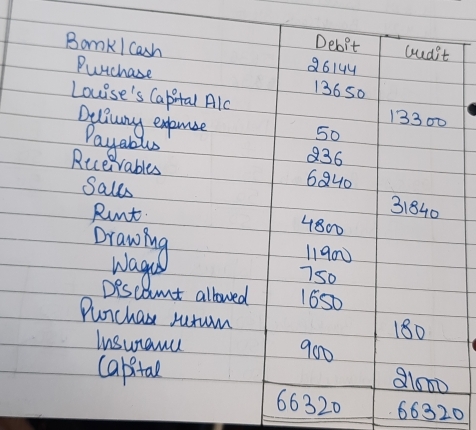 Debit Credit
Bank/Cash 26144
Purchase 13650
Louise's Capital A/c 13300
Delivery expense 50
Payables 236
Receivables 6240
Sales 31840
Rent. 4800
Drawing 11900
Wages 750
Discount allowed 1650
Purchase return 180
Insurance 900
Capital 21000
66320 66320